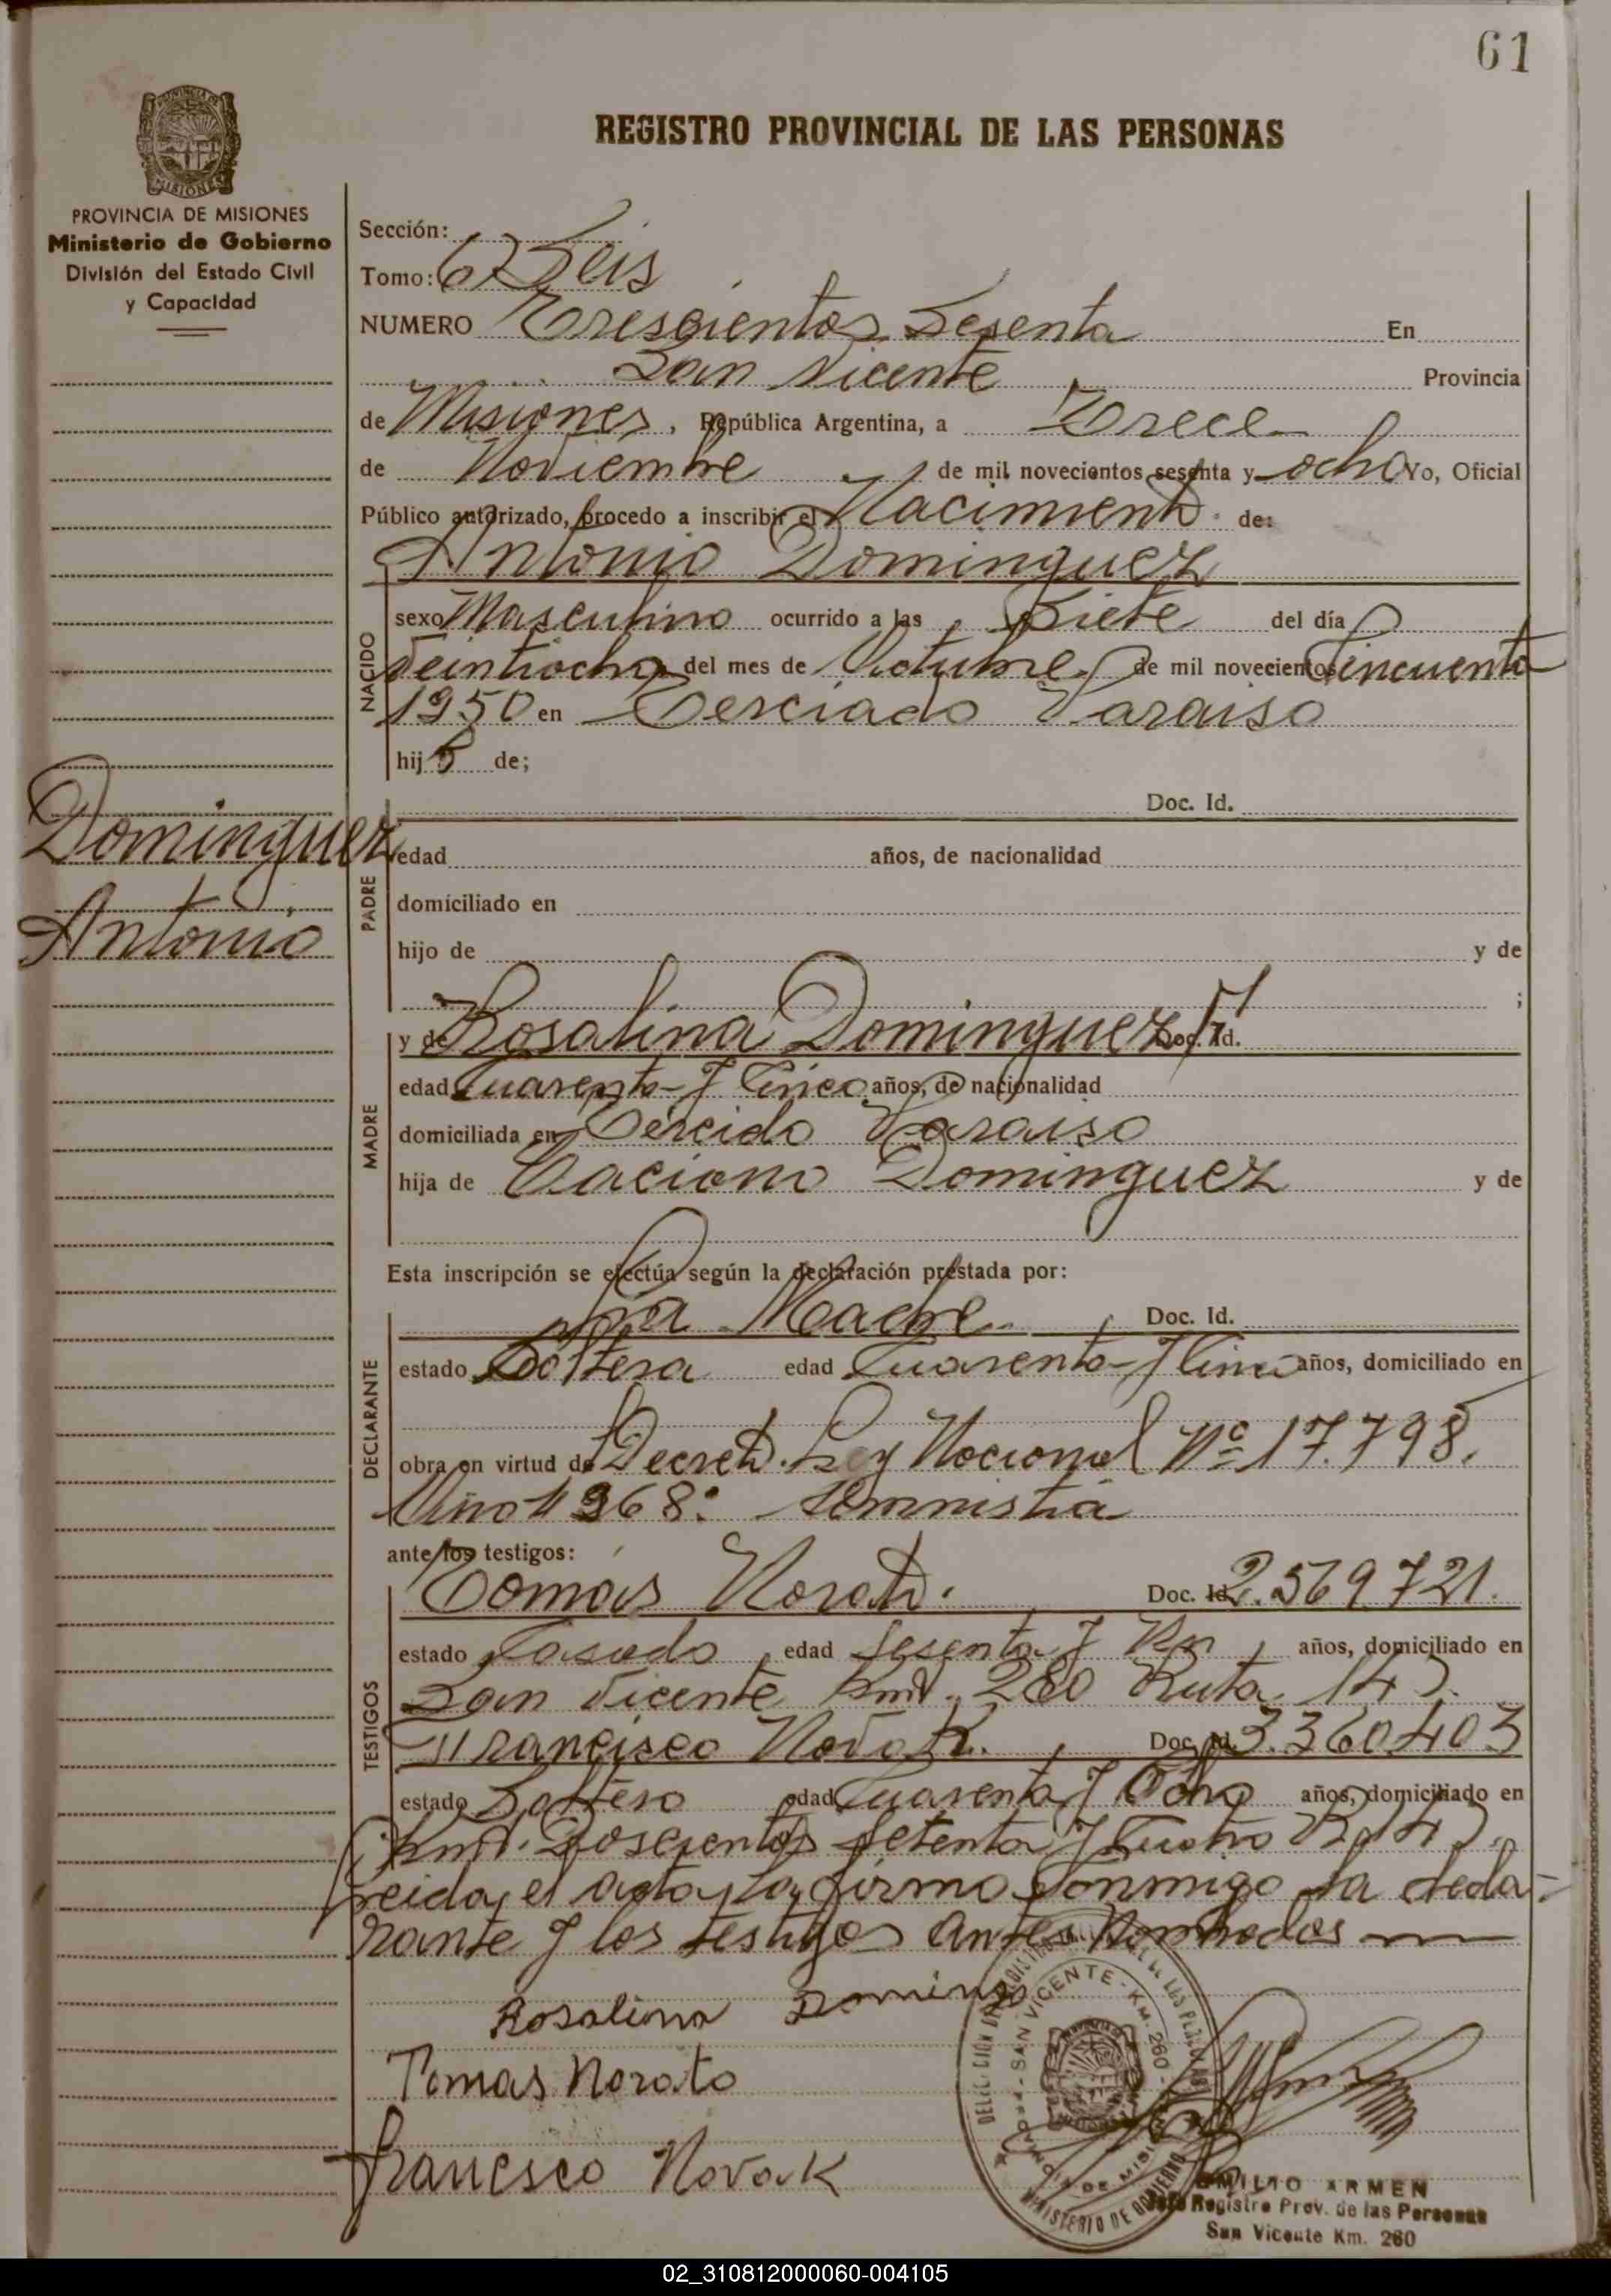 61
REGISTRO PROVINCIAL DE LAS PERSONAS
PROVINCIA DE MISIONES
Ministerio de Gobierno
División del Estado Civil
y Capacidad
Sección:
Tomo: 6) Seis
NUMERO Trescientos Sesenta En
San Vicente Provincia
de Misiones, República Argentina, a Trece
de Noviembre de mil novecientos sesenta y ocho Yo, Oficial
Público autorizado, procedo a inscribir el Nacimiento de:
Antonio Dominguez
NACIDO
sexo Masculino ocurrido a las Siete del día
Veintiocho del mes de Octubre de mil novecientos Cincuenta
1950 en Terciado Paraiso
hijo de;
Dominguez
Antonio
PADRE
Doc. Id.
edad años, de nacionalidad
domiciliado en
hijo de y de
;
MADRE
y de Rosalina Dominguez Doc. Id.
edad Cuarenta y Cinco años, de nacionalidad
domiciliada en Tercido Paraiso
hija de Dominguez y de
Esta inscripción se efectúa según la declaración prestada por:
DECLARANTE
La Madre Doc. Id.
estado Soltera edad Cuarenta y Cinco años, domiciliado en
obra en virtud de Decreto Ley Nacional Nº 17.798.
Año 1968: Amnistia
ante los testigos:
TESTIGOS
Tomas Norato. Doc. Id. 2.569.721.
estado Casado, edad Sesenta y Un, años, domiciliado en
San Vicente Kmt. 280 Ruta 14).
Francisco Novak. Doc. Id. 3.360403
estado Soltero edad Cuarenta y Ocho años, domiciliado en
Kmt. Doscientos Setenta y Cuatro R. 14).
Leida, el acta, la firma Conmigo la decla=
rante y los testigos Antes Nombrados
Rosalina Domingo
Tomas Norato
Francisco Novak
SAN VICENTE - KM. 260
MINISTERIO DE GOBIERNO
EMILIO ARMEN
Jefe Registro Prov. de las Personas
San Vicente Km. 260
02_310812000060-004105